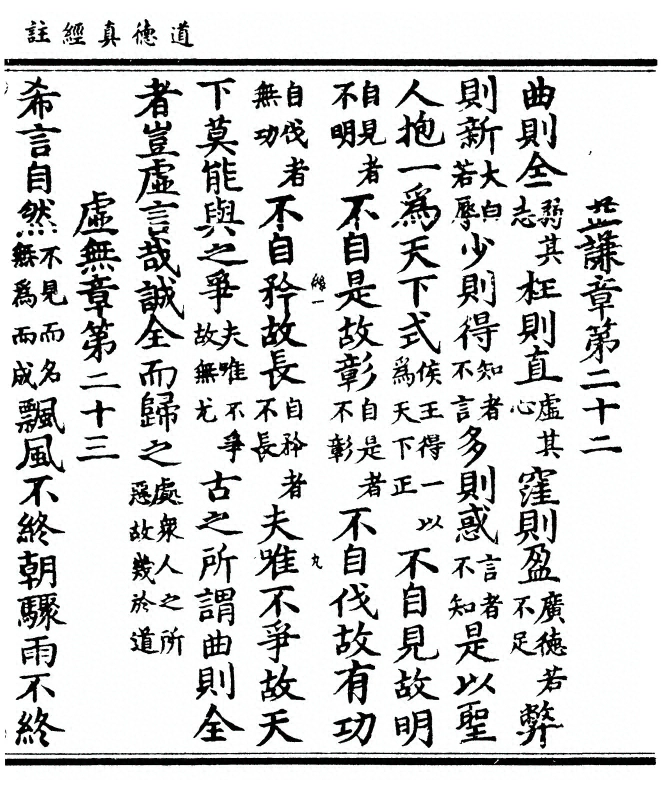 道德真經註
益謙章第二十二
曲則全弱其志枉則直虛其心窪則盈廣德若不足弊
則新大白若辱少則得知者不言多則惑言者不知是以聖
人抱一爲天下式侯王得一以爲天下正不自見故明
自見者不明不自是故彰自是者不彰不自伐故有功
自伐者無功不自矜故長自矜者不長夫唯不爭故天
下莫能與之爭夫唯不爭故無尤古之所謂曲則全
者豈虛言哉誠全而歸之處衆人之所惡故幾於道
虛無章第二十三
希言自然不見而名無爲而成飄風不終朝驟雨不終